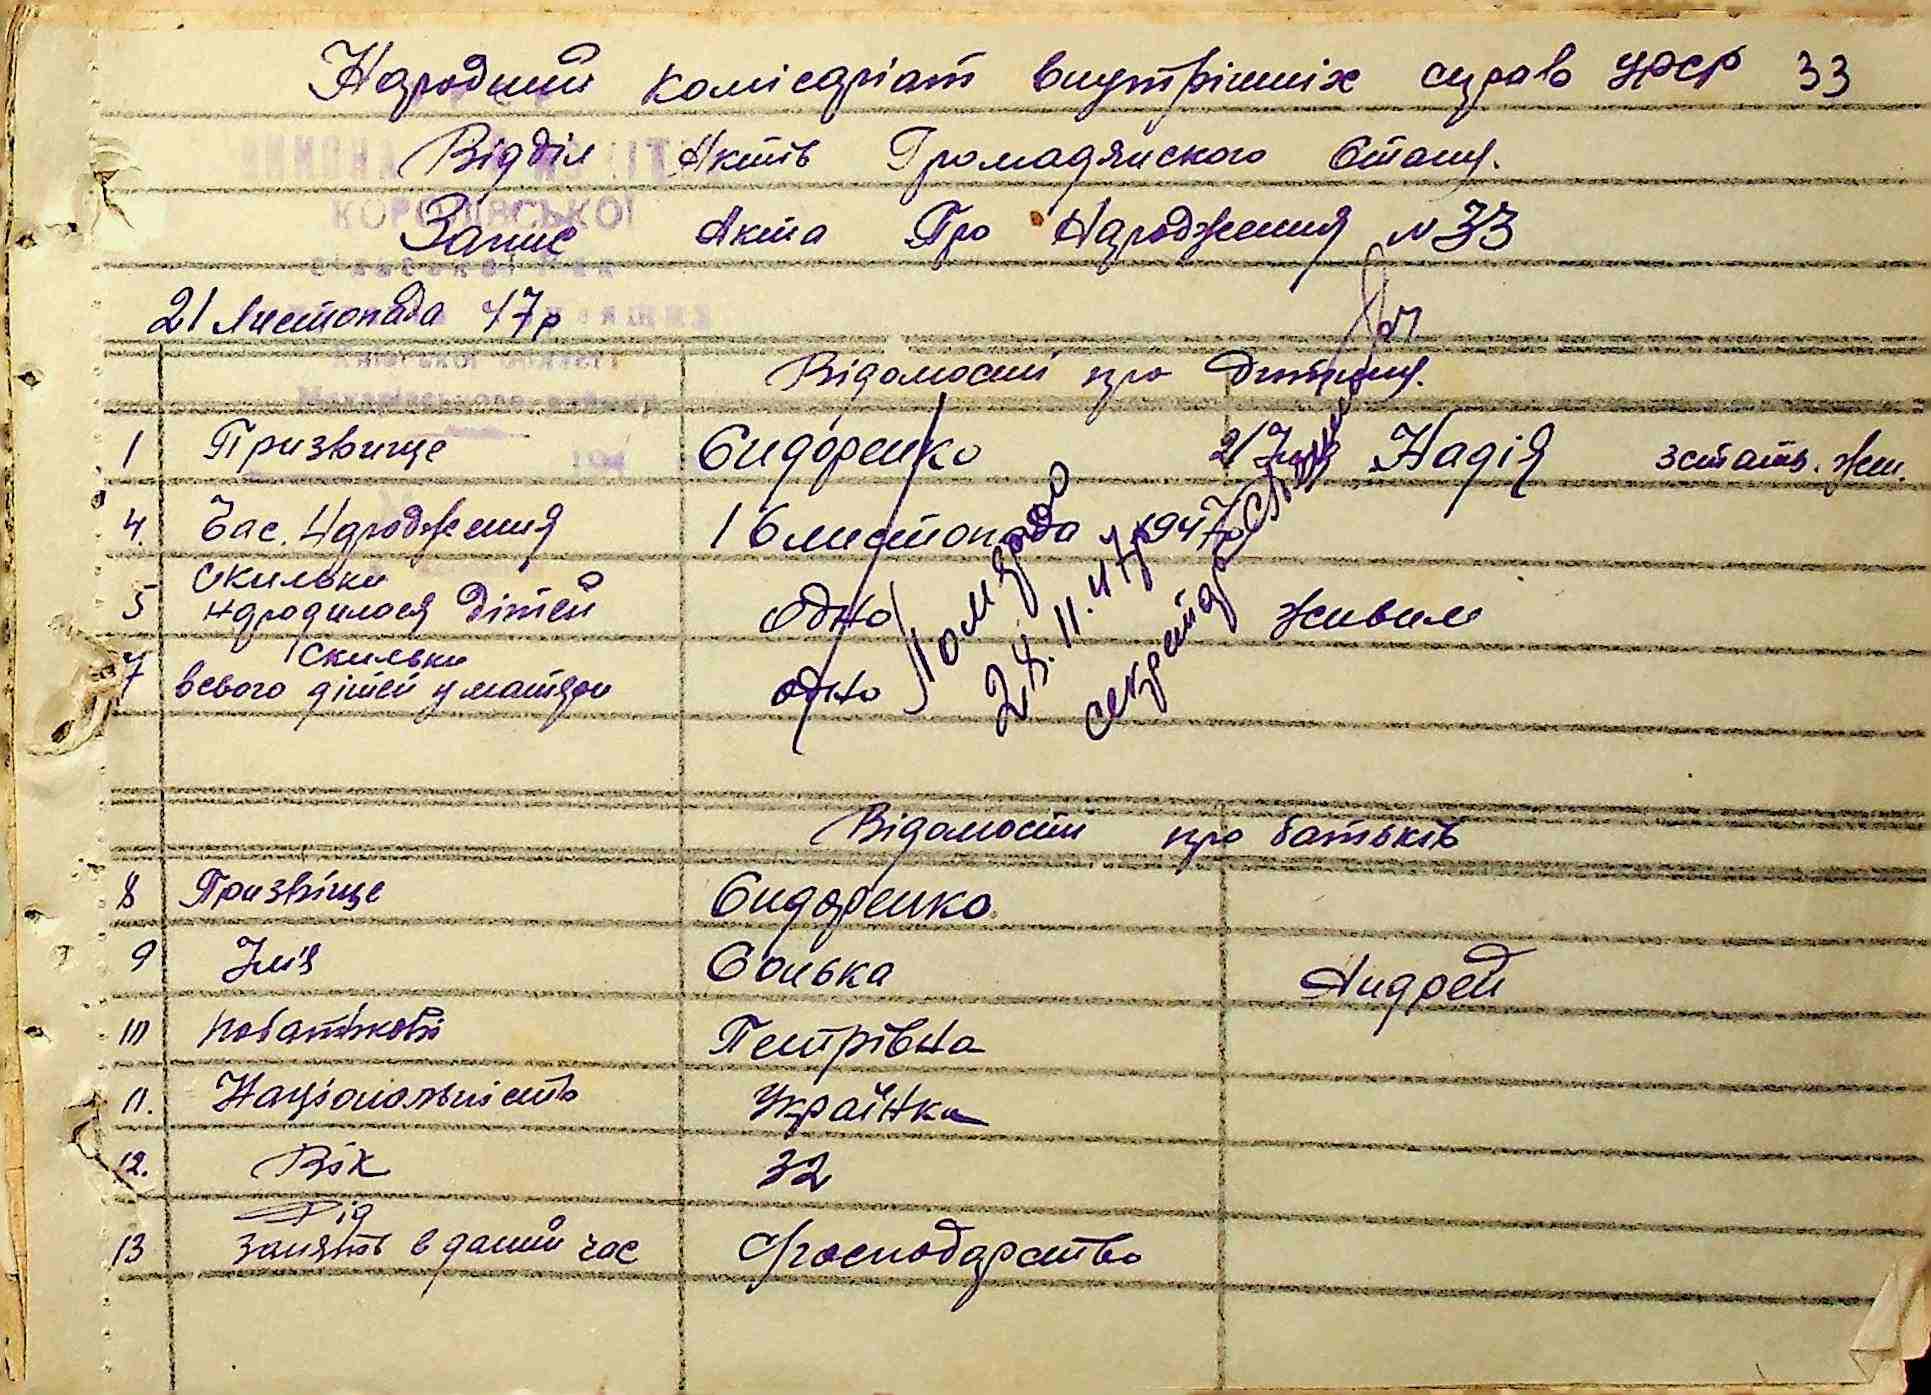 Народний комісаріат внутрішніх справ УРСР 33
Відділ Актів Громадянского Стану.
КОРОЛІВСЬКОЇ
Запис Акта Про Народження N 33
21 Листопада 47р
Київської області
Відомості про дитину.
1 Призвище Сидоренко 2) Імя Надія 3 стать. жін.
4. Час. Народження 16 листопада 1947р
5 Скильки народилося дітей одно живим
7 Скильки всього дітей у матери одно
Померло
28.11.47р
секретар
Відомості про батьків
8 Призвіще Сидоренко
9 Імя Сонька Андрей
10 побатькові Петрівна
11. Національність Українка
12. Вік 32
13 Рід занять в даний час С/господарство